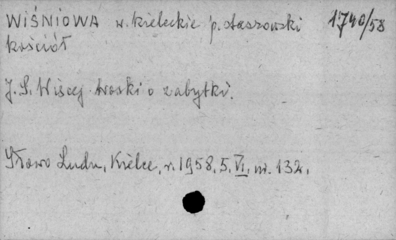 WIŚNIOWA w. kieleckie p. staszowski 1740/58
kościół
J. S. Więcej troski o zabytki.
Słowo Ludu, Kielce, r. 1958, 5. VI, nr. 132.